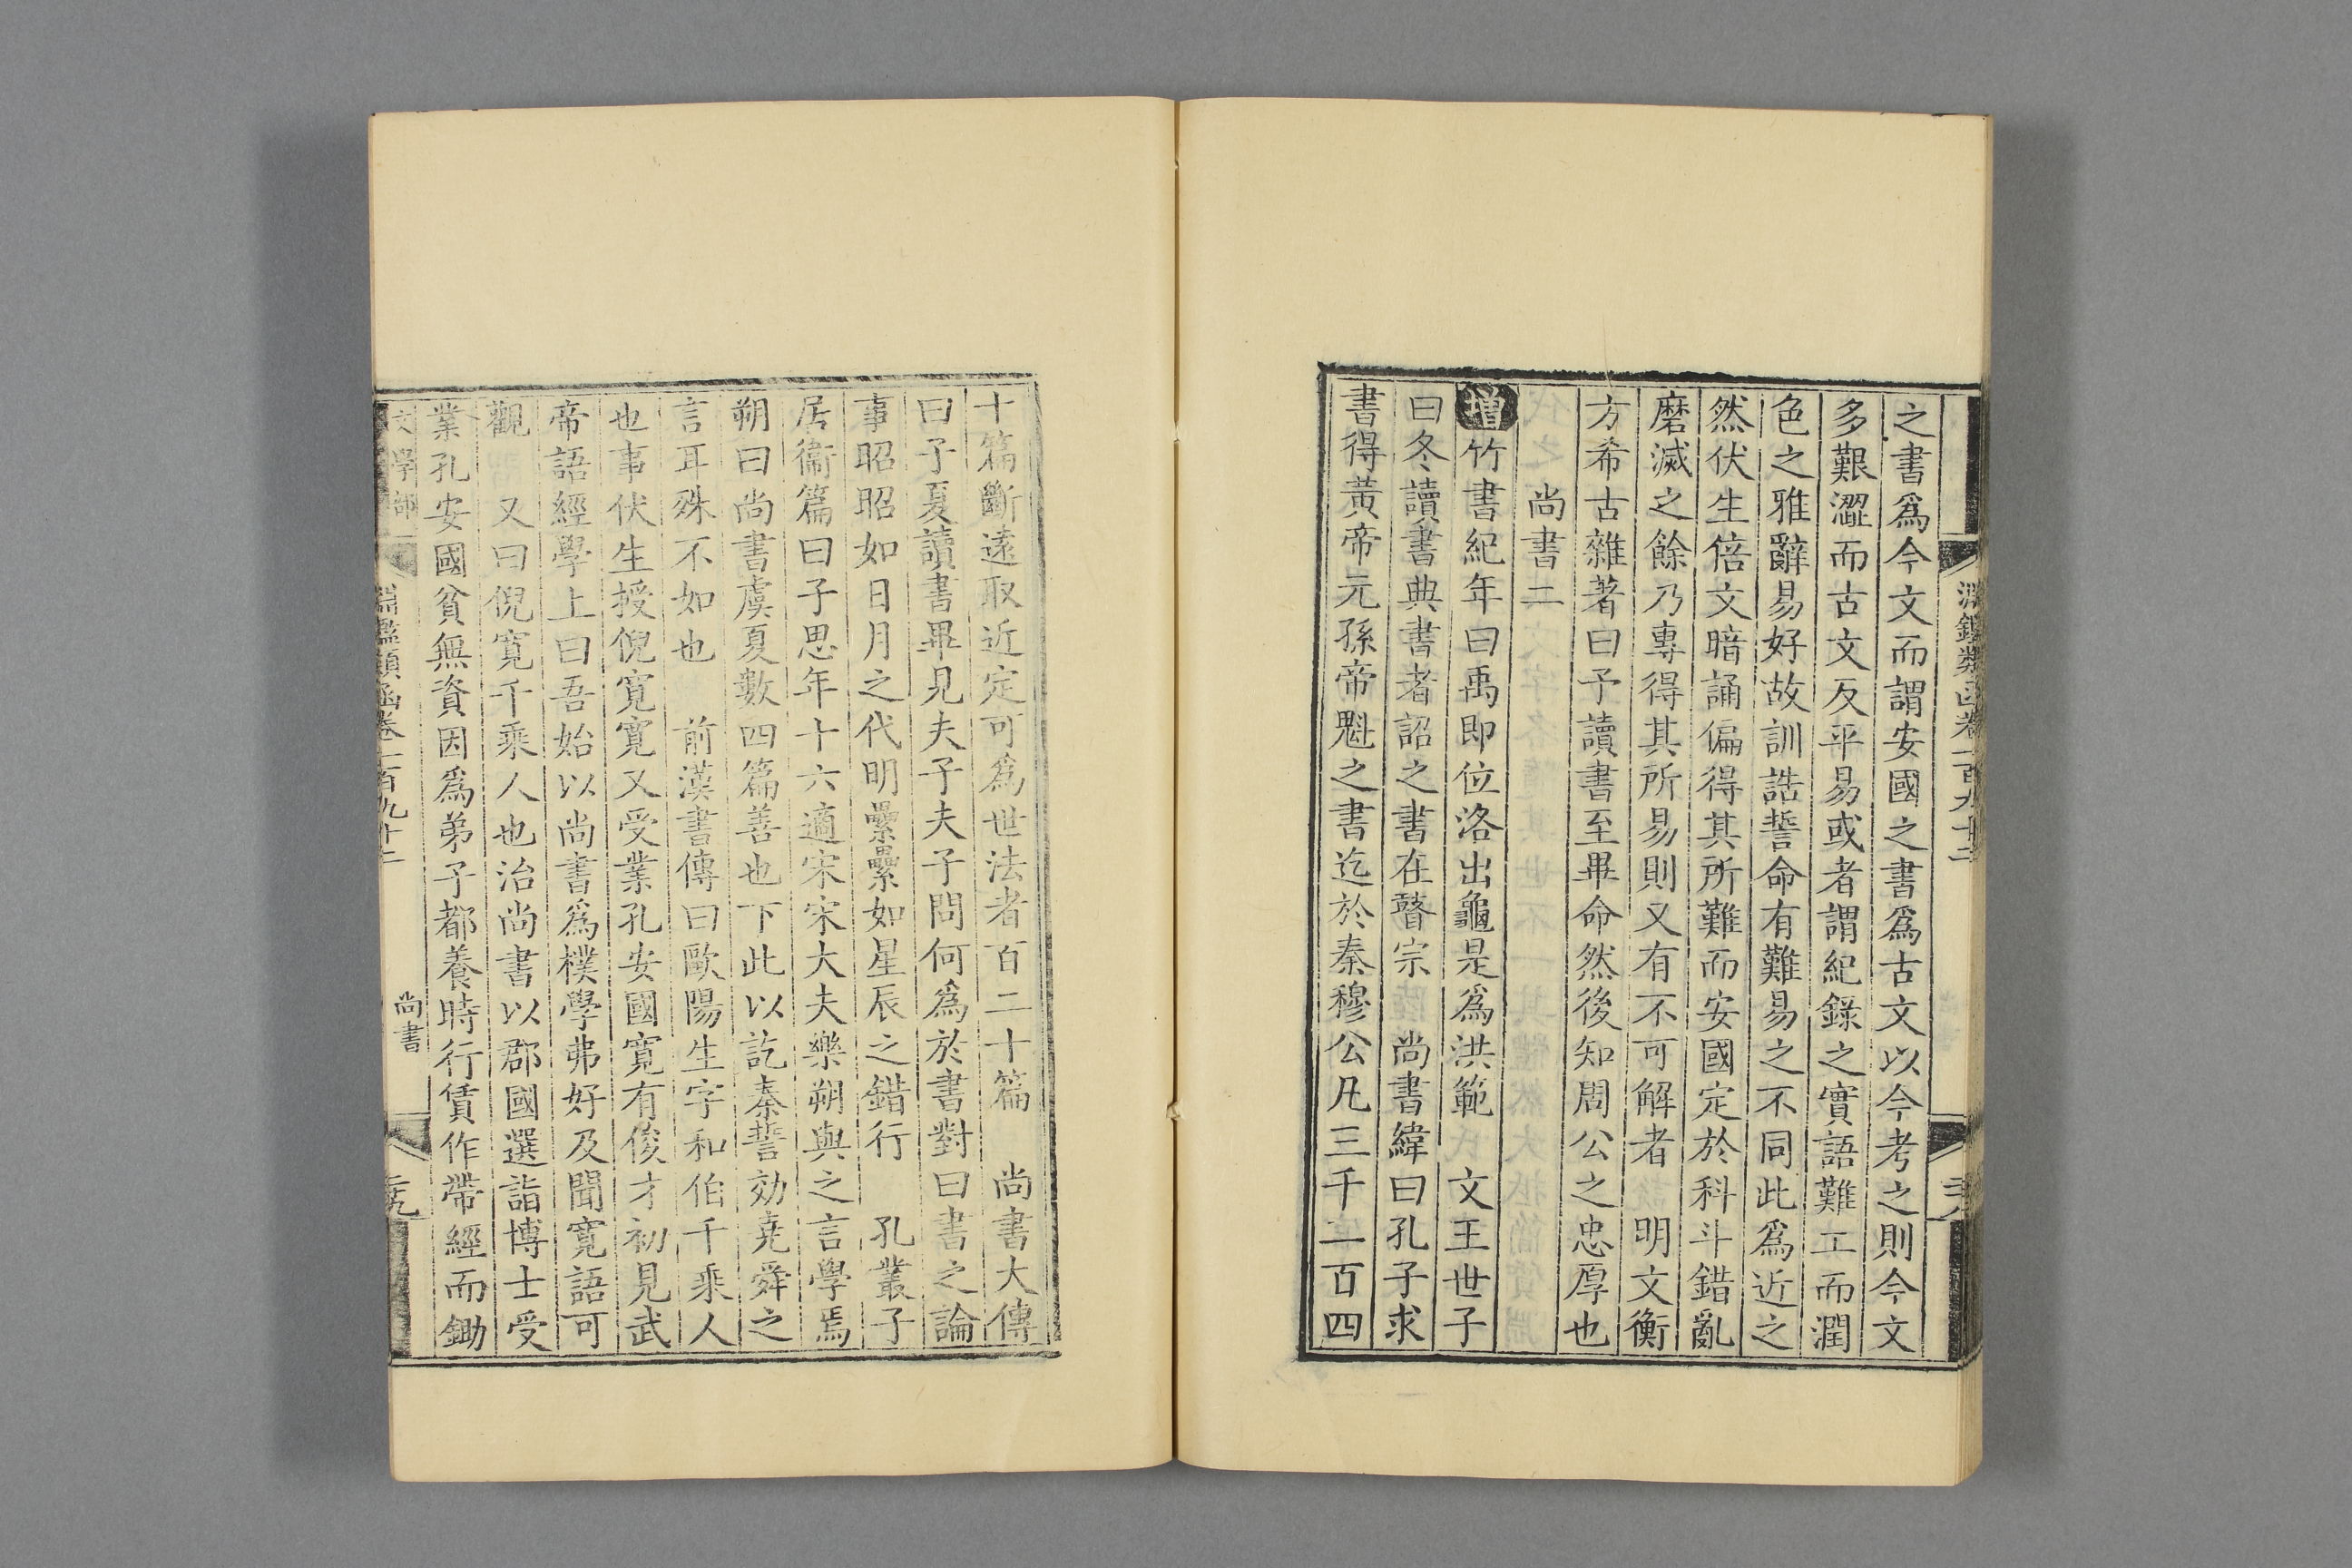 淵鑑類函卷一百九十二
之書爲今文而謂安國之書爲古文以今考之則今文
多艱澀而古文反平易或者謂紀錄之實語難工而潤
色之雅辭易好故訓誥誓命有難易之不同此爲近之
然伏生倍文暗誦偏得其所難而安國定於科斗錯亂
磨滅之餘乃專得其所易則又有不可解者 明文衡
方希古雜著曰予讀書至畢命然後知周公之忠厚也
尚書二
增竹書紀年曰禹即位洛出龜是爲洪範 文王世子
曰冬讀書典書者詔之書在瞽宗 尚書緯曰孔子求
書得黃帝元孫帝魁之書迄於秦穆公凡三千二百四
十篇斷遠取近定可爲世法者百二十篇 尚書大傳
曰子夏讀書畢見夫子夫子問何爲於書對曰書之論
事昭昭如日月之代明纍纍如星辰之錯行 孔叢子
居衞篇曰子思年十六適宋宋大夫樂朔與之言學焉
朔曰尚書虞夏數四篇善也下此以訖秦誓効堯舜之
言耳殊不如也 前漢書傳曰歐陽生字和伯千乘人
也事伏生授倪寬寬又受業孔安國寬有俊才初見武
帝語經學上曰吾始以尚書爲樸學弗好及聞寬語可
觀 又曰倪寬千乘人也治尚書以郡國選詣博士受
業孔安國貧無資因爲弟子都養時行賃作帶經而鋤
文學部 淵鑑類函卷一百九十二 尚書